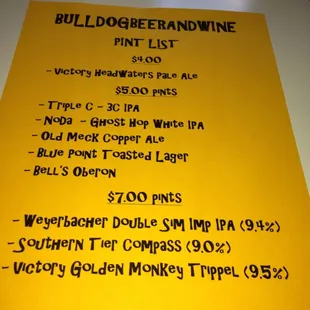 BULLDOGBEERANDWINE
PINT LIST
$4.00
- Victory HeadWaters Pale Ale
$5.00 PINTS
- Triple C - 3C IPA
- NoDa - Ghost Hop White IPA
- Old Meck Copper Ale
- Blue Point Toasted Lager
- Bell's Oberon
$7.00 PINTS
- Weyerbacher Double Sim Imp IPA (9.4%)
- Southern Tier Compass (9.0%)
- Victory Golden Monkey Trippel (9.5%)